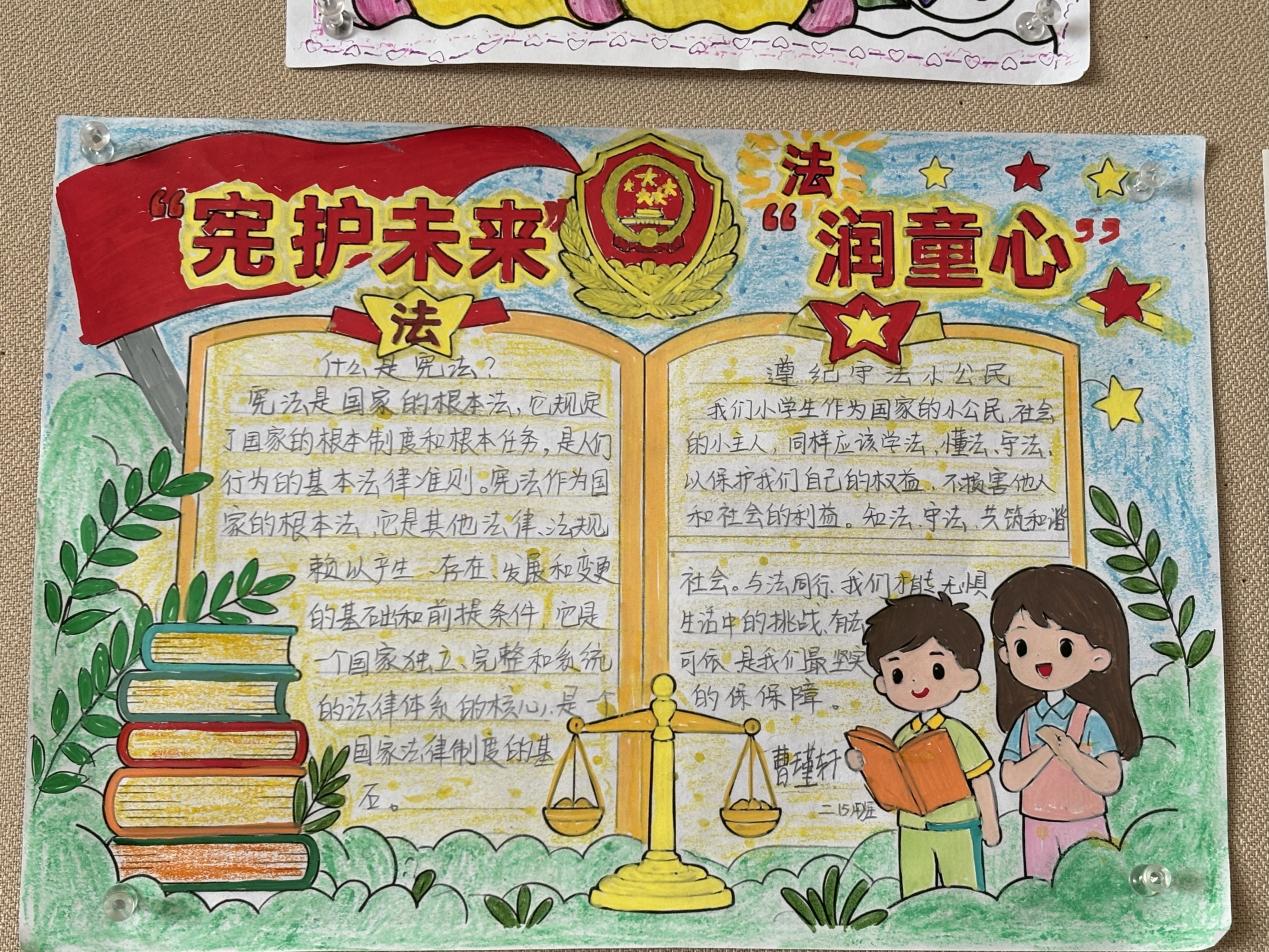 “宪护未来”
法
“润童心”
法
什么是宪法?
宪法是国家的根本法,它规定
了国家的根本制度和根本任务,是人们
行为的基本法律准则。宪法作为国
家的根本法,它是其他法律、法规
赖以产生、存在、发展和变更
的基础和前提条件,它是
一个国家独立、完整和系统
的法律体系的核心,是一个
国家法律制度的基
石。
遵纪守法小公民
我们小学生作为国家的小公民,社会
的小主人,同样应该学法、懂法、守法,
以保护我们自己的权益,不损害他人
和社会的利益。知法、守法,共筑和谐
社会。与法同行,我们才能无惧
生活中的挑战,有法
可依,是我们最坚实
的保保障。
曹瑾轩
二15班